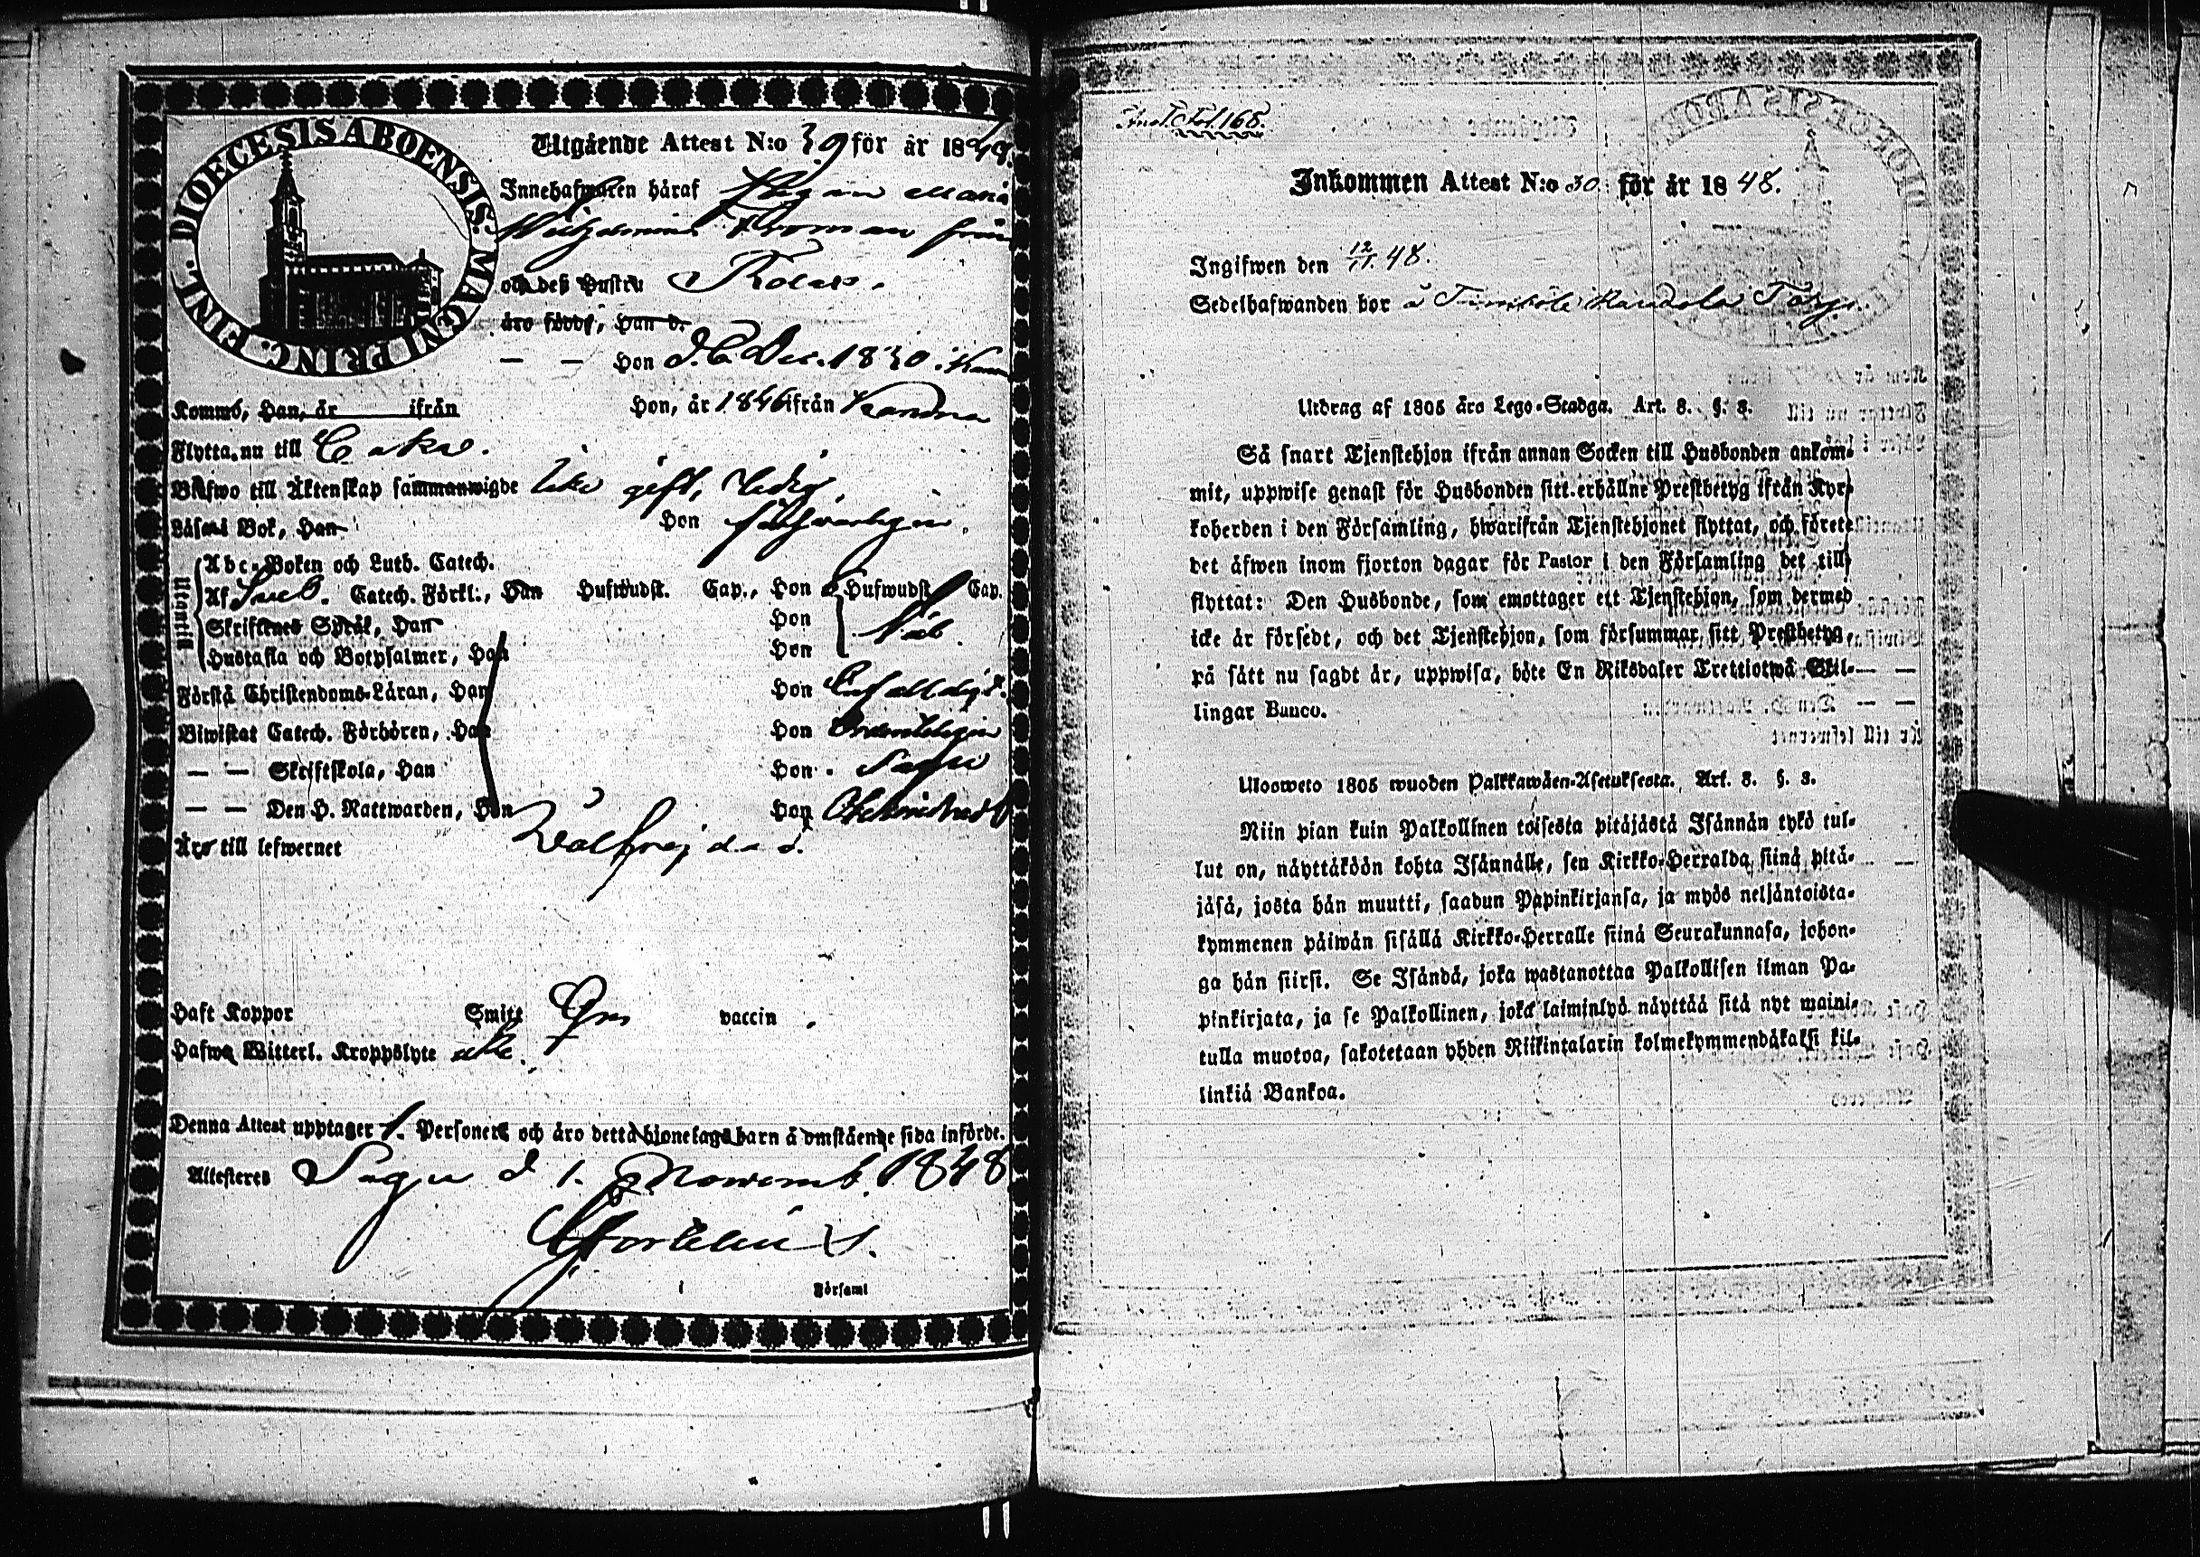 DIOECESIS ABOENSIS. MAGNI PRINC. FINL.
Utgående Attest N:o 39 för år 1848.
Innehafwaren håraf Pigan Maria
Wilhelmina Froman från
och deß Hustru
åro födde, Han d.
— — Hon d. 6 Dec. 1830.
Kommo, Han, år ifrån Hon, år 1846 ifrån
Flytta nu till
Blifwo till Äktenskap sammanwigde Icke gift, ledig
Låser i Bok, Han Hon
Utantill
Abc-Boken och Luth. Catech.
Af Sveb. Catech. Förkl:, Han Hufwudst. Cap., Hon Hufwudst. Cap.
Skriftenes Språk, Han Hon
Hustafla och Botpsalmer, Han Hon
Förstå Christendoms-Låran, Han Hon
Biwistat Catech. Förhören, Han Hon Ordenteligen
— — Skriftskola, Han Hon Sagu
— — Den H. Nattwarden, Han Hon
Äro till lefwernet Wälfrejdad.
Haft Koppor Smitt Gm vaccin.
Hafwa Witterl. Kroppslyte icke.
Denna Attest upptager 1. Personer och åro detta hionelags barn å omstående sida införde.
Attesteres Sagu d 1. Novemb. 1848
i Församl
Fol. 168.
Inkommen Attest N:o 30. för år 1848.
Ingifwen den 12/11. 48.
Sedelhafwanden bor å
Utdrag af 1805 års Lego-Stadga. Art. 3. §. 3.
Så snart Tjenstehjon ifrån annan Socken till Husbonden ankom-
mit, uppwise genast för Husbonden sitt erhållne Prestbetyg ifrån Kyr-
koherden i den Församling, hwarifrån Tjenstehjonet flyttat, och förete
det åfwen inom fjorton dagar för Pastor i den Församling det till
flyttat: Den Husbonde, som emottager ett Tjenstehjon, som dermed
icke år försedt, och det Tjenstehjon, som försummar sitt Prestbetyg,
på sått nu sagdt år, uppwisa, böte En Riksdaler Trettiotwå Skil-
lingar Banco.
Ulosweto 1805 wuoden Palkkawåen-Asetuksesta. Art. 3. §. 3.
Niin pian kuin Palkollinen toisesta pitåjåstå Isånnån tykö tul-
lut on, nåyttåköön kohta Isånnålle, sen Kirkko-Herralda siinå pitå-
jåså, josta hån muutti, saadun Papinkirjansa, ja myös neljåntoista-
kymmenen påiwån sisållå Kirkko-Herralle siinå Seurakunnasa, johon-
ga hån siirsi. Se Isåndå, joka wastanottaa Palkollisen ilman Pa-
pinkirjata, ja se Palkollinen, joka laiminlyö nåyttåå sitå nyt maini-
tulla muotoa, sakotetaan yhden Riikintalarin kolmekymmendåkaksi kil-
linkiå Bankoa.